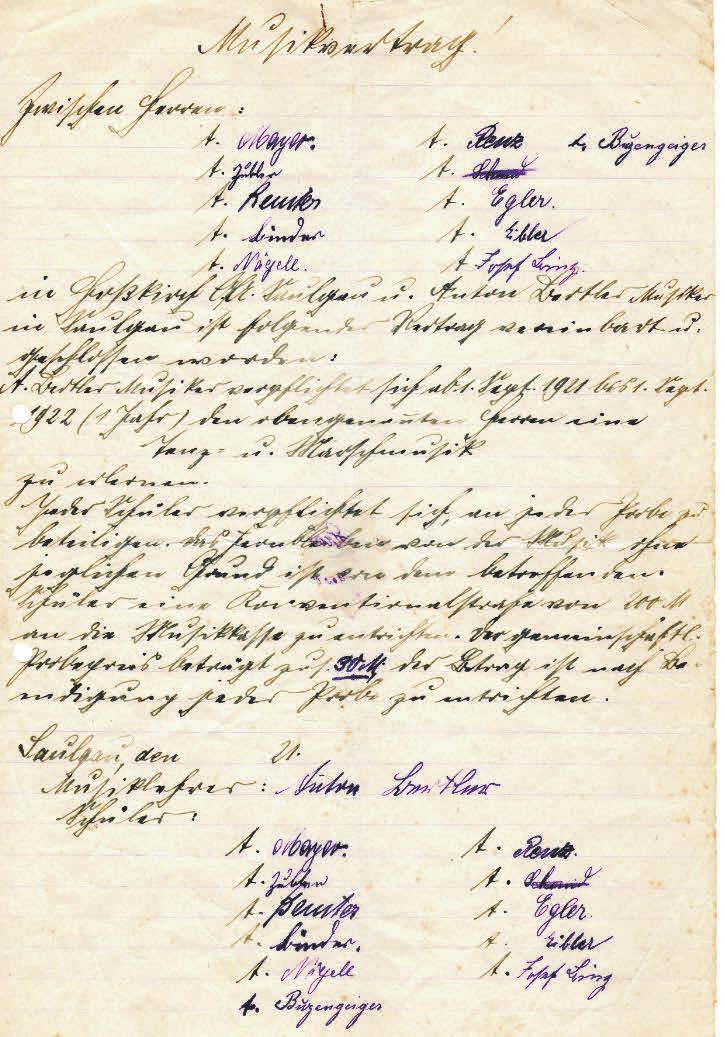 Musikvertrag!
Zwischen Herren:
A. Mayer. A. Renz A. Buzengeiger
A. Zübler A. Schmid
A. Reuter A. Egler.
A. Binder A. Eibler
A. Nägele. A. Josef Ling.
in Hoßkirch O/A. Saulgau u. Anton Bertler Musiker
in Saulgau ist folgender Vertrag vereinbart u.
geschlossen worden:
A. Bertler Musiker verpflichtet sich ab 1. Sept. 1921 bis 1. Sept.
1922 (1 Jahr) den obengenannten Herren eine
Tanz- u. Marschmusik
zu erlernen.
Jeder Schüler verpflichtet sich, an jeder Probe zu
beteiligen. Das Fernbleiben von der Musik ohne
jeglichen Grund ist von dem betreffenden
Schüler eine Konventionalstrafe von 200 M
an die Musikkasse zu entrichten. Der gemeinschaftl.
Probepreis beträgt zus. 30 M, der Betrag ist nach Be-
endigung jeder Probe zu entrichten.
Saulgau, den 21.
Musiklehrer: Anton Bertler
Schüler:
A. Mayer. A. Renz.
A. Zübler A. Schmid
A. Reuter A. Egler.
A. Binder. A. Eibler
A. Nägele A. Josef Ling
A. Buzengeiger